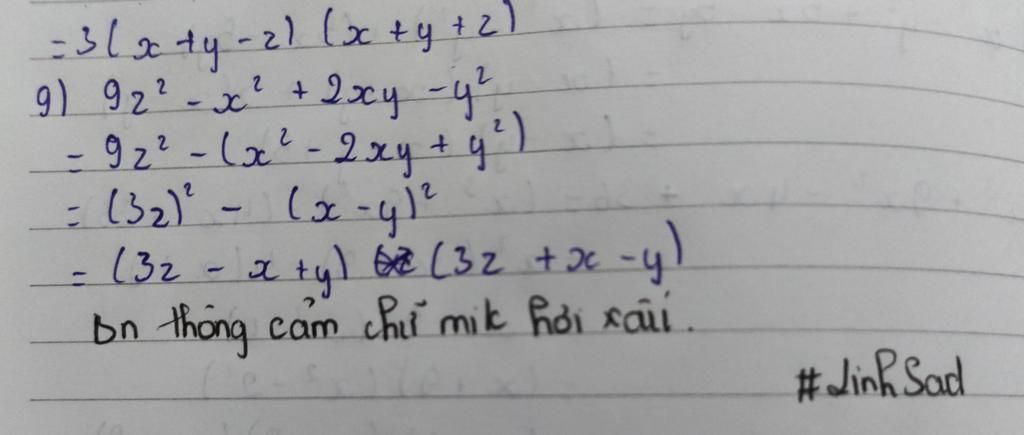 =3(x+y-z)(x+y+z)
g) 9z² - x² + 2xy - y²
= 9z² - (x² - 2xy + y²)
= (3z)² - (x-y)²
= (3z - x +y) (3z +x -y)
bn thông cảm chữ mik hơi xấu.
#LinhSad